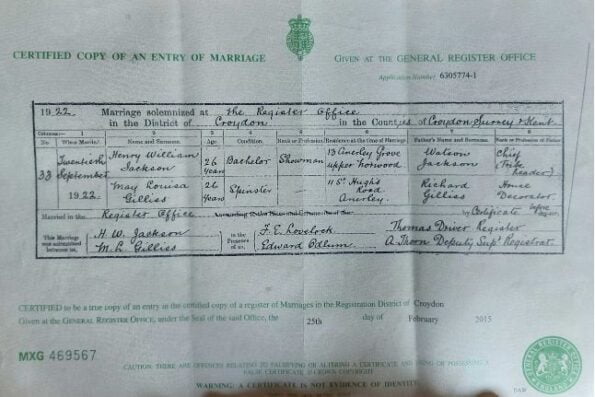 CERTIFIED COPY OF AN ENTRY OF MARRIAGE
GIVEN AT THE GENERAL REGISTER OFFICE
Application Number 6305774-1
1922. Marriage solemnized at The Register Office
in the District of Croydon in the Counties of Croydon Surrey & Kent
Columns:- 1 2 3 4 5 6 7 8
No. When Married Name and Surname Age Condition Rank or Profession Residence at the time of Marriage Father's Name and Surname Rank or Profession of Father
33 Twentieth September 1922 Henry William Jackson 26 years Bachelor Showman 13 Anerley Grove Upper Norwood Watson Jackson Chief (Tribe Leader)
May Louisa Gillies 26 years Spinster — 11 St Hugh's Road Anerley. Richard Gillies House Decorator.
Married in the Register Office by Certificate before me,
This Marriage was solemnized between us, H. W. Jackson M. L. Gillies in the Presence of us, F. E. Lovelock Edward Odlum Thomas Driver Registrar A Thorn Deputy Supt Registrar
CERTIFIED to be a true copy of an entry in the certified copy of a register of Marriages in the Registration District of Croydon
Given at the GENERAL REGISTER OFFICE, under the Seal of the said Office, the 25th day of February 2015
MXG 469567
CAUTION: THERE ARE OFFENCES RELATING TO FALSIFYING OR ALTERING A CERTIFICATE AND USING OR POSSESSING A
FALSE CERTIFICATE © CROWN COPYRIGHT
WARNING: A CERTIFICATE IS NOT EVIDENCE OF IDENTITY.
GENERAL REGISTER OFFICE ENGLAND